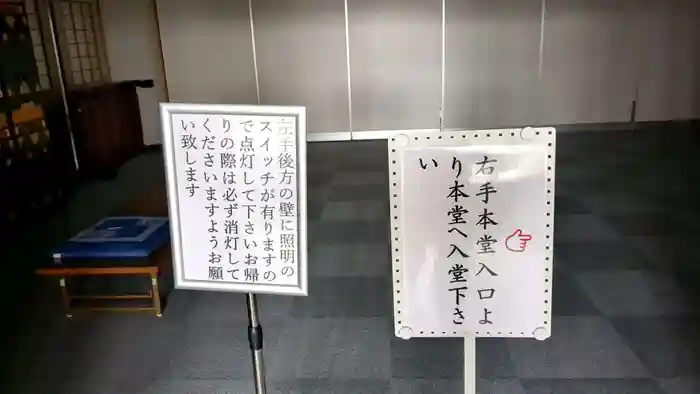 右手後方の壁に照明の
スイッチが有りますの
で点灯して下さいお帰
りの際は必ず消灯して
くださいますようお願
い致します
右手本堂入口よ
り本堂へ入堂下さ
い